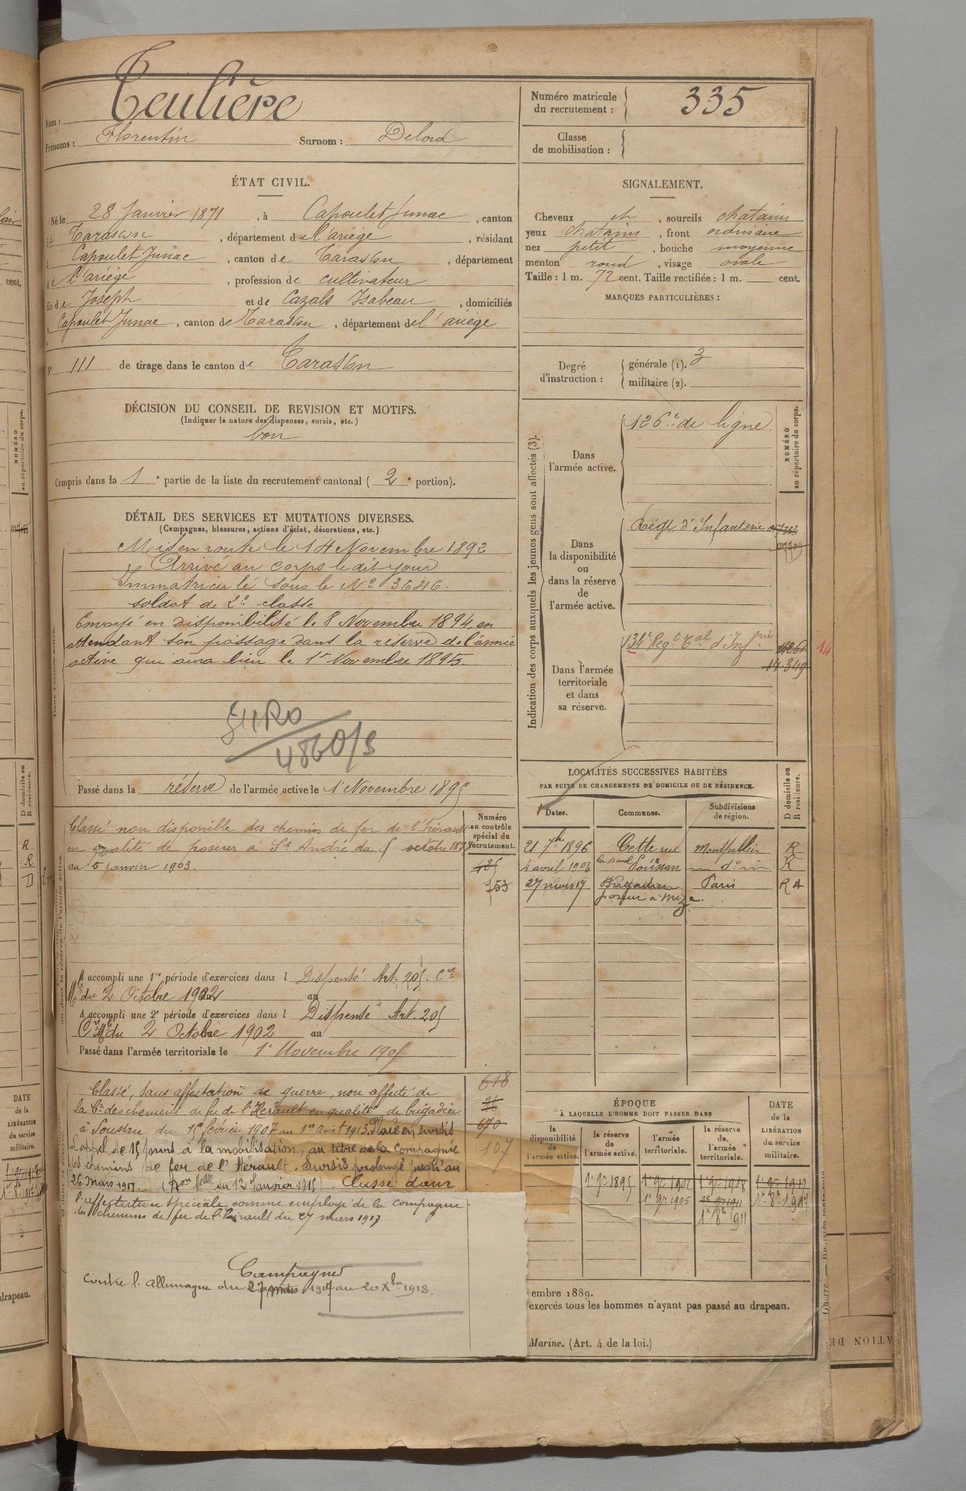 Nom : Teulière
Prénoms : Florentin Surnom : Delord
ÉTAT CIVIL.
Né le 28 Janvier 1871, à Capoulet Junac, canton
de Tarascon, département de l'ariège, résidant
à Capoulet-Junac, canton de Tarascon, département
de l'ariège, profession de cultivateur
fils de Joseph et de Cazals Isabeau, domiciliés
à Capoulet Junac, canton de Tarascon, département de l'ariège
111 de tirage dans le canton de Tarascon
DÉCISION DU CONSEIL DE REVISION ET MOTIFS.
(Indiquer la nature des dispenses, sursis, etc.)
bon
Compris dans la 1e partie de la liste du recrutement cantonal (2e portion).
DÉTAIL DES SERVICES ET MUTATIONS DIVERSES.
(Campagnes, blessures, actions d'éclat, décorations, etc.)
Mis en route le 14 Novembre 1892
Arrivé au corps le dit jour
Immatriculé sous le No 3646.
soldat de 2e classe
Envoyé en disponibilité le 8 Novembre 1894, en
attendant son passage dans la réserve de l'armée
active qui aura lieu le 1er Novembre 1895.
4860/3
Passé dans la réserve de l'armée active le 1 Novembre 1895
Numéro
au contrôle
spécial du
recrutement.
Classé non disponible des chemins de fer de l'hérault
en qualité de poseur à St André du octobre
au 5 janvier 1903.
153
A accompli une 1re période d'exercices dans l Dispensé Art. 205. Cre
Mlle du 2 Octobre 1902 au
A accompli une 2e période d'exercices dans l Dispensé Art 205
Cre Mlle du 2 Octobre 1902 au
Passé dans l'armée territoriale le 1er Novembre 1905
Classé, sans affectation de guerre, non affecté de
la Cie des chemins de fer de l'Hérault en qualité de brigadier
à Poussan du février 1907 au 1er avril 1913. Placé en sursis
d'appel de 15 jours à la mobilisation, au titre de la compagnie
des chemins de fer de l'Hérault. Sursis prolongé jusqu'au
26 mars 1917. du 12 Janvier 1915. Classé dans
l'affectation spéciale comme employé de la compagnie
des chemins de fer de l'Hérault du 27 mars 1917
618
670
107
Campagnes
Contre l'Allemagne du 27 mars 1917 au 20 Xbre 1918.
Numéro matricule
du recrutement : 335
Classe
de mobilisation :
SIGNALEMENT.
Cheveux et, sourcils chatains
yeux chatains, front ordinaire
nez petit, bouche moyenne
menton rond, visage ovale
Taille : 1 m. 72 cent. Taille rectifiée : 1 m. cent.
MARQUES PARTICULIÈRES :
Degré
d'instruction :
générale (1). 3
militaire (2).
Indication des corps auxquels les jeunes gens sont affectés (3).
NUMÉRO
au répertoire du corps.
Dans
l'armée active.
126e de ligne
Dans
la disponibilité
ou
dans la réserve
de
l'armée active.
Régt d'Infanterie
Dans l'armée
territoriale
et dans
sa réserve.
134e Regt Tal d'Infrie
14
14.349
LOCALITÉS SUCCESSIVES HABITÉES
PAR SUITE DE CHANGEMENTS DE DOMICILE OU DE RÉSIDENCE.
Dates. Communes. Subdivisions
de région.
D domicile ou
R résidence.
21 7bre 1896 Cette Montpellier R
4 avril 1903 Poussan do R
27 mars 17 Brigadier Paris R A
poseur à Mèze.
ÉPOQUE
À LAQUELLE L'HOMME DOIT PASSER DANS
DATE
de la
LIBÉRATION
du service
militaire.
la
disponibilité
de
l'armée active.
la réserve
de
l'armée active.
l'armée
territoriale.
la réserve
de
l'armée
territoriale.
1er 9bre 1895 1er 9bre 1905
1er 8bre 1911
embre 1889.
exercés tous les hommes n'ayant pas passé au drapeau.
Marine. (Art. 4 de la loi.)